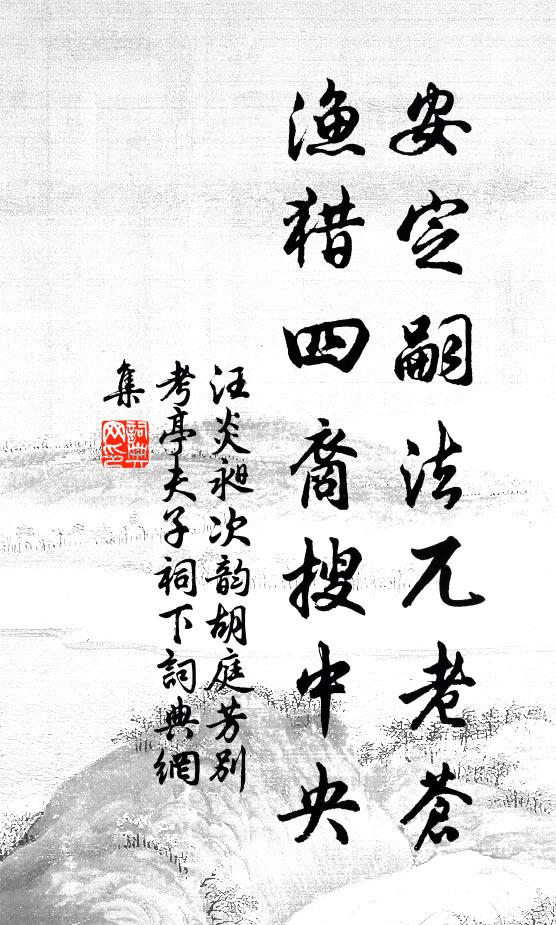 安定嗣法兀老苍
渔猎四裔搜中央
汪炎昶次韵胡庭芳别
考亭夫子祠下詞典網
集